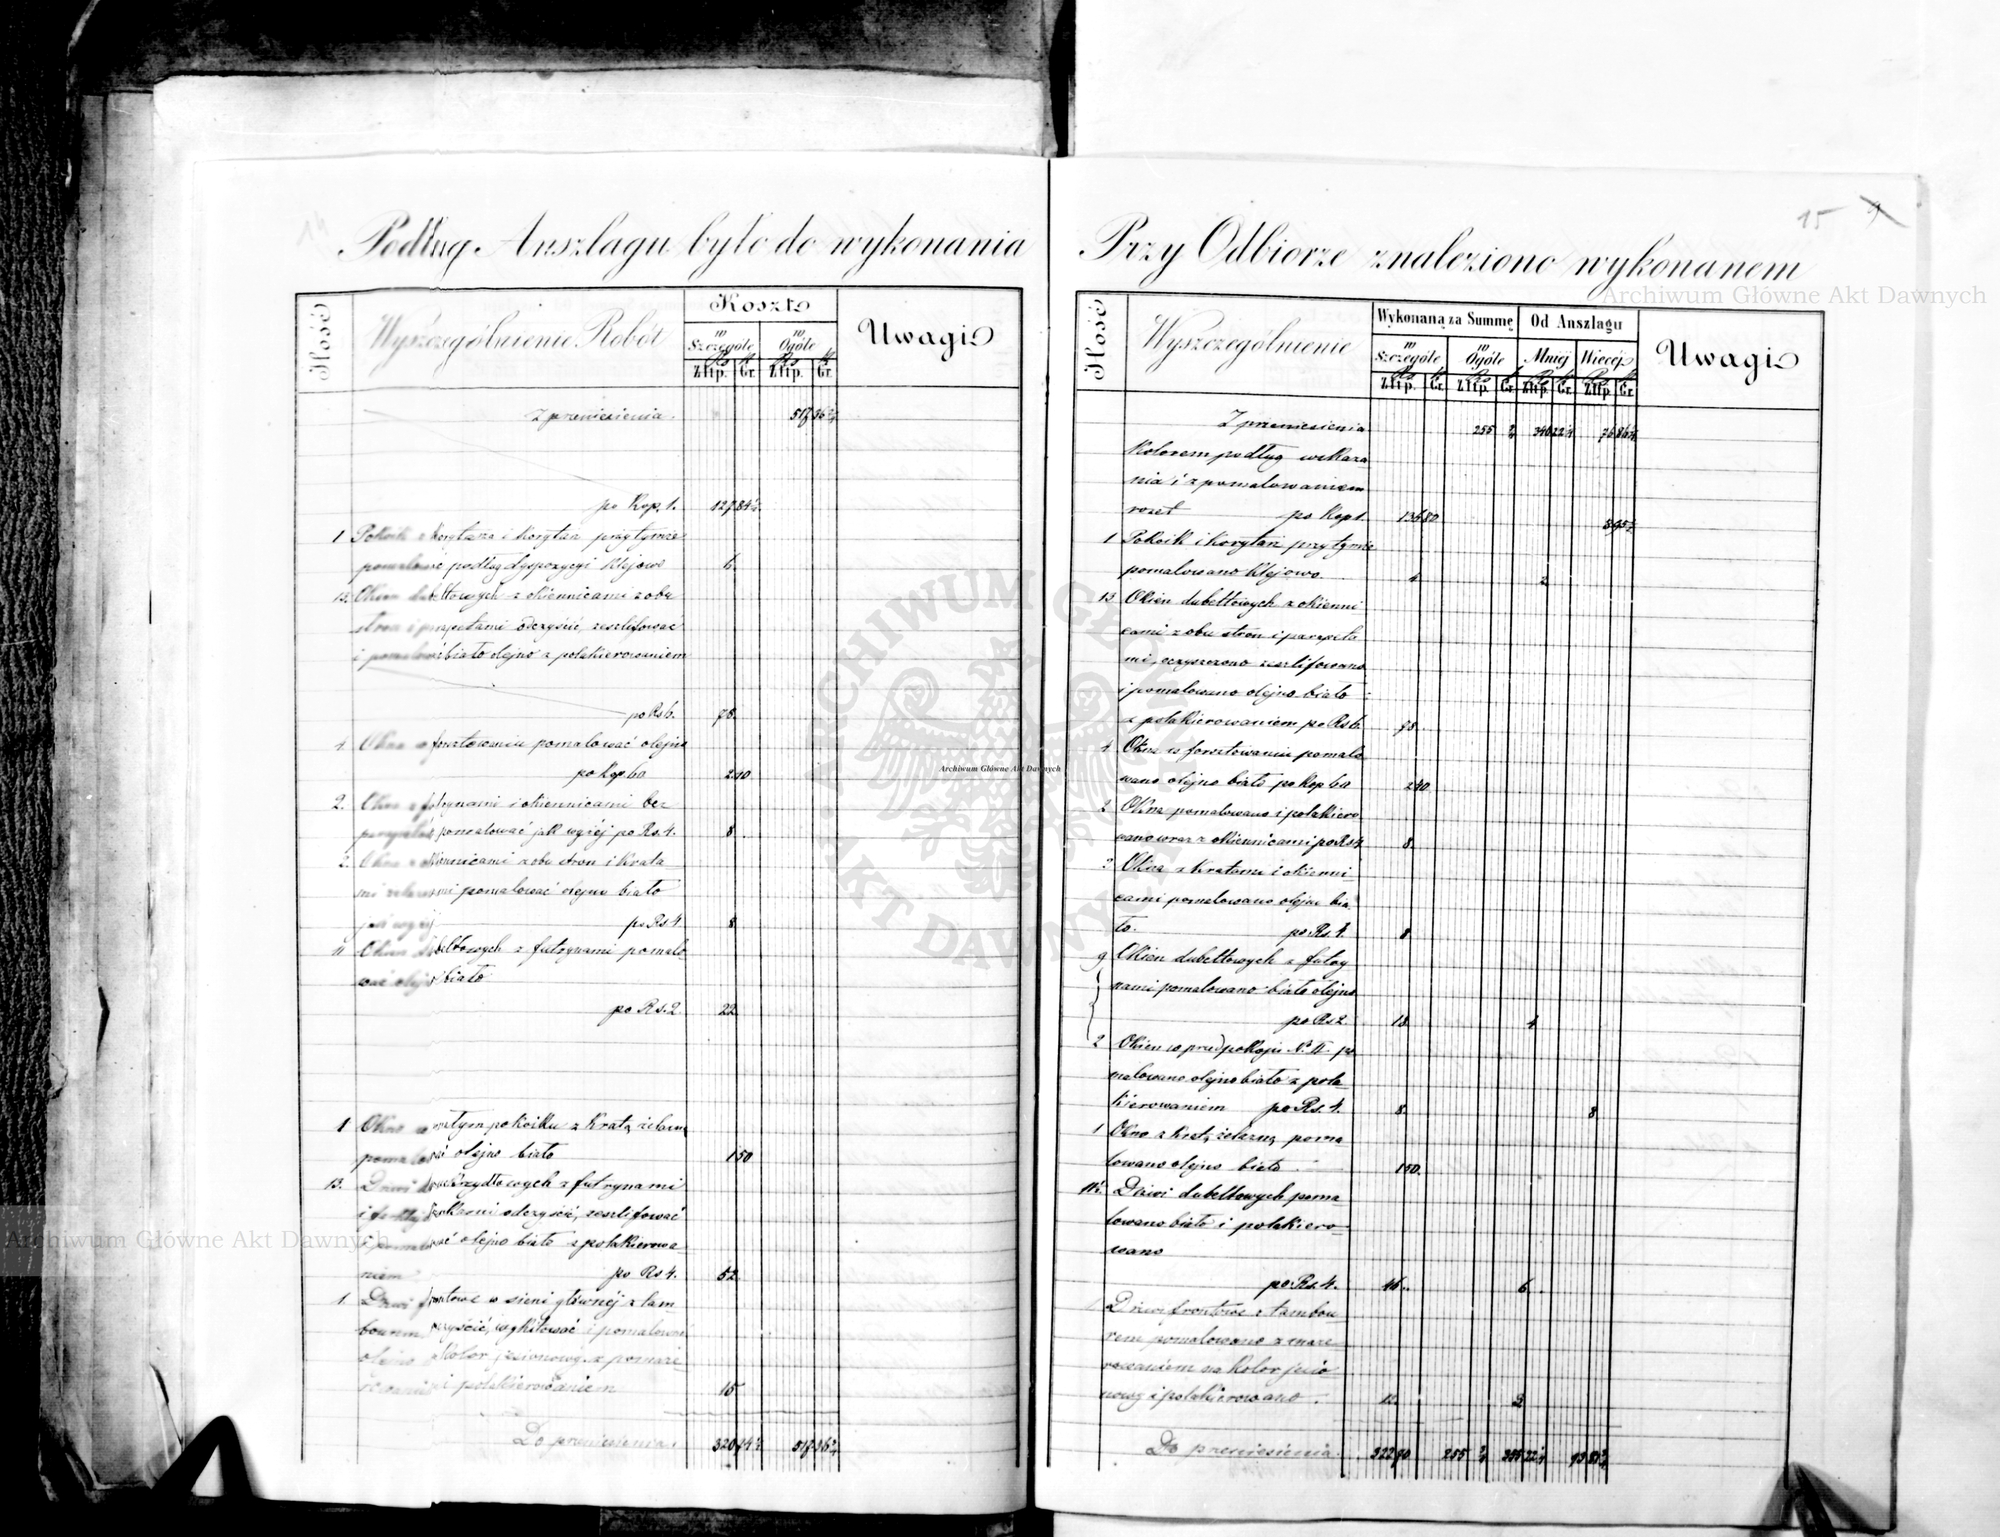 15 9
Podług Anszlagu było do wykonania
Ilość
Wyszczególnienie Robót
Koszta
w Szczególe
w Ogóle
Rs k Rs k
Złtp. Gr. Złtp. Gr.
Uwagi
Z przeniesienia.
po Kop. 1. 127 84½
1 Pokoik z korytarza i Korytarz przytymże
pomalować podług dyspozycyi Klejowo 6.
13. Okien dubeltowych z okiennicami z obu
stron i parapetami oczyścić, zeszlifować
i pomalować biało olejno z polakierowaniem
po Rs 6. 78.
4. Okna w forsztowaniu pomalować olejno
po Kop 60 2 40
2. Okna z futrynami i okiennicami bez
pomalować jak wyżej po Rs. 4. 8
2. Okna z okiennicami z obu stron i Krata
mi żelaznemi pomalować olejno biało
jak wyżej po Rs 4 8
11 Okien dubeltowych z futrynami pomalo
wać olejno biało
po Rs. 2 22
1 Okno w małym pokoiku z Kratą żelazną
pomalować olejno biało 1 50
13. Drzwi dwuskrzydłowych z futrynami
odczyścić, zeszlifować
i pomalować olejno biało z polakierowa
niem po Rs 4. 52
1. Drzwi frontowe w sieni głównej z tam
bourem oczyścić, wykitować i pomalować
olejno kolor jesionowy z pomaże
rowaniem i polakierowaniem 15
Do przeniesienia.
Przy Odbiorze znaleziono wykonanem
Ilość
Wyszczególnienie
Wykonaną za Summę
Od Anszlagu
w Szczególe
w Ogóle
Mniej
Więcej
Złtp. Gr. Złtp. Gr. Złtp. Gr. Złtp. Gr.
Uwagi
Z przeniesienia 255
Kolorem podług wskaza
nia i z pomalowaniem
rozet po Kop 1. 136 80
1 Pokoik i Korytarz przytymże
pomalowano Klejowo 4 2
13 Okien dubeltowych z okienni
cami z obu stron i parapeta
mi, oczyszczono zeszlifowano
i pomalowano olejno biało
z polakierowaniem po Rs 6. 78.
4 Okna w forsztowaniu pomalo
wano olejno biało po Kop 60 2 40
2 Okna pomalowano i polakiero
wano wraz z okiennicami po Rs 4 8.
2 Okna z Kratami i okienni
cami pomalowano olejno bia
ło. po Rs. 4. 8
9 Okien dubeltowych z futry
nami pomalowano biało olejno
po Rs 2. 18. 4
2 Okien w przedpokoju No. II. po
malowano olejno biało z pola
kierowaniem po Rs. 4. 8 8
1 Okno z Kratą żelazną poma
lowano olejno biało. 1 50.
11½ Drzwi dubeltowych poma
lowano biało i polakiero
wano
po Rs. 4. 46. 6.
1 Drzwi frontowe z tambou
rem pomalowano z maże
rowaniem na kolor jesio
nowy i polakierowano. 12. 3
Do przeniesienia. 322 70 255
Archiwum Główne Akt Dawnych
Archiwum Główne Akt Dawnych
Archiwum Główne Akt Dawnych
ARCHIWUM GŁÓWNE AKT DAWNYCH